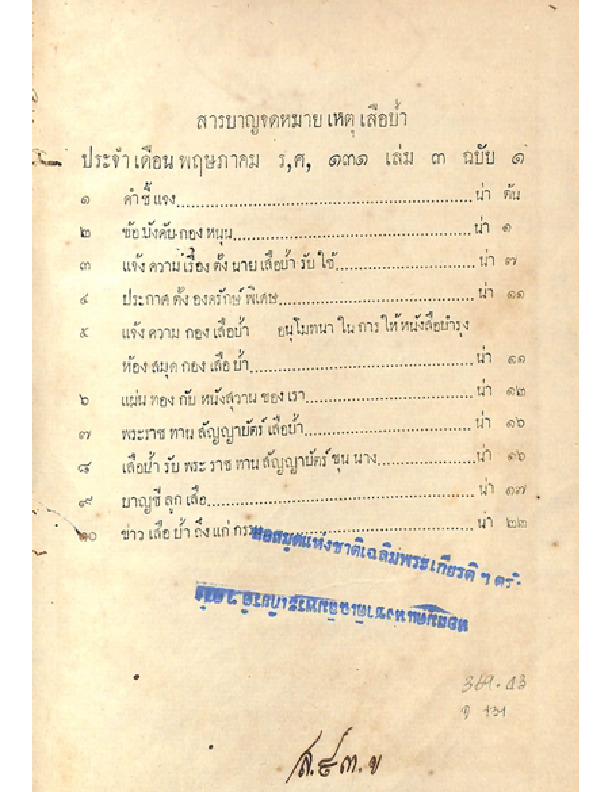 สารบาญจดหมาย เหตุ เสือป่า
ประจำ เดือน พฤษภาคม ร,ศ, ๑๓๑ เล่ม ๓ ฉบับ ๑
๑ คำ ชี้ แจง น่า ต้น
๒ ข้อ บังคับ กอง หนุน น่า ๑
๓ แจ้ง ความ เรื่อง ตั้ง นาย เสือป่า รับ ใช้ น่า ๗
๔ ประกาศ ตั้ง องครักษ์ พิเศษ น่า ๑๑
๕ แจ้ง ความ กอง เสือป่า อนุโมทนา ใน การ ให้ หนังสือบำรุง
ห้อง สมุด กอง เสือ ป่า น่า ๑๑
๖ แผ่น ทอง กับ หนังสุวาน ของ เรา น่า ๑๒
๗ พระราช ทาน สัญญาบัตร์ เสือป่า น่า ๑๖
๘ เสือป่า รับ พระ ราช ทาน สัญญาบัตร์ ขุน นาง น่า ๑๖
๙ บาญชี ลูก เสือ น่า ๑๗
๑๐ ข่าว เสือ ป่า ถึง แก่ กรรม น่า ๒๒
หอสมุดแห่งชาติเฉลิมพระเกียรติ ฯ ตรัง
หอสมุดแห่งชาติเฉลิมพระเกียรติ ฯ ตรัง
369.43
ส.๔ ๓.ข